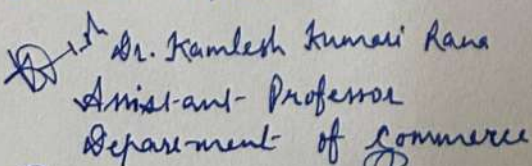 Dr. Kamlesh Kumari Rana
Assistant Professor
Department of Commerce